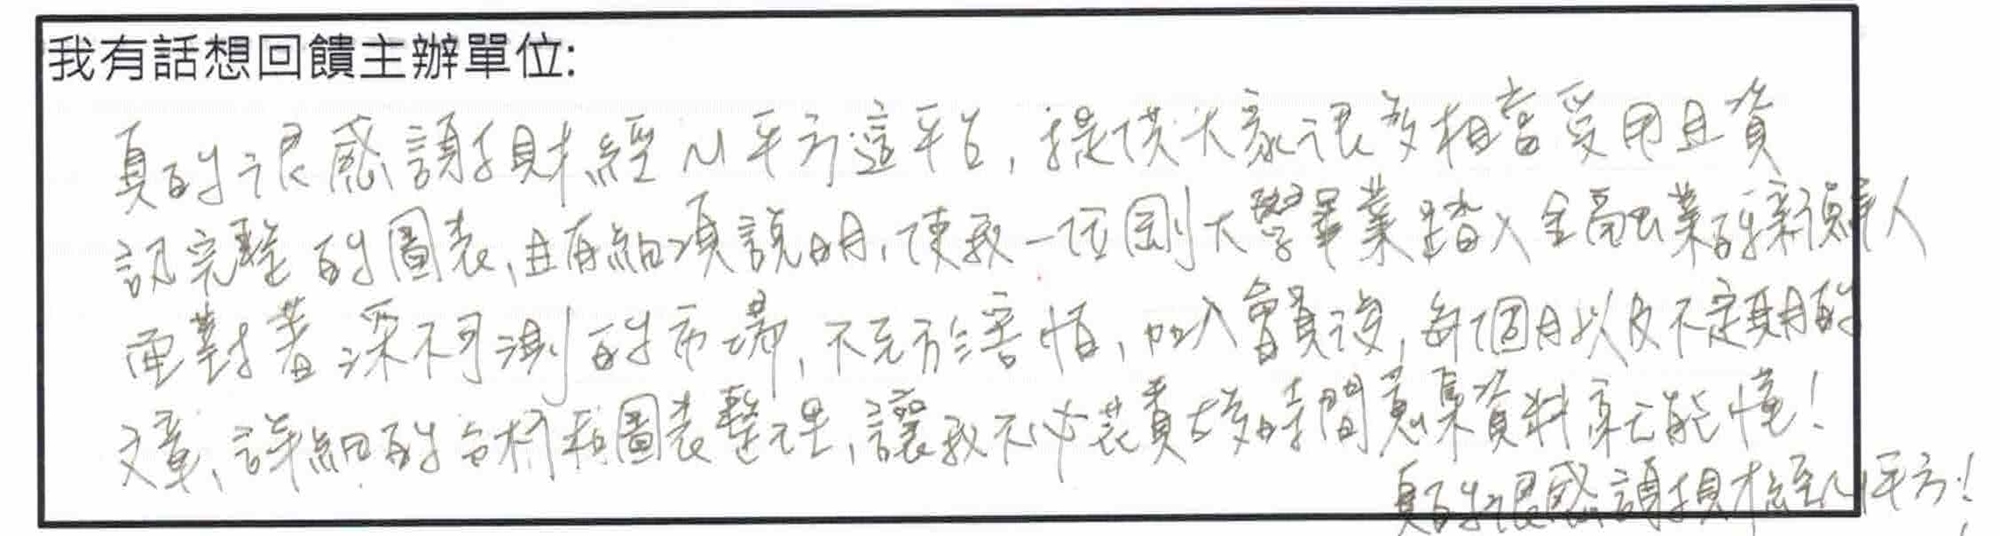 我有話想回饋主辦單位:
真的很感謝財經M平方這平台，提供大家很多相當受用且資
訊完整的圖表，且有細項說明，使我一位剛大學畢業踏入金融業的新鮮人
面對著深不可測的市場，不充於害怕，加入會員後，每個月以及不定期的
文章、詳細的分析和圖表整理，讓我不必花費太多時間蒐集資料就能懂！
真的很感謝財經M平方！